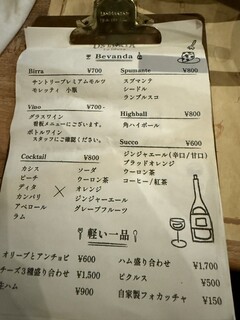 Bevanda
Birra ¥700
サントリープレミアムモルツ
モレッティ 小瓶
Spumante ¥800
スプマンテ
シードル
ランブルスコ
Vino ¥700
グラスワイン
看板メニューございます。
ボトルワイン
スタッフにご確認下さい。
Highball ¥800
角ハイボール
Succo ¥600
ジンジャエール(辛口/甘口)
ブラッドオレンジ
ウーロン茶
コーヒー/紅茶
Cocktail ¥800
カシス ソーダ
ピーチ ウーロン茶
ディタ × オレンジ
カンパリ ジンジャーエール
アペロール グレープフルーツ
ラム
軽い一品
オリーブとアンチョビ ¥600
チーズ3種盛り合わせ ¥1,500
生ハム ¥900
ハム盛り合わせ ¥1,700
ピクルス ¥500
自家製フォカッチャ ¥150